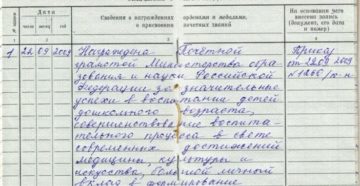 Дата
Сведения о награждениях орденами и медалями,
о присвоении почетных званий
На основании чего
внесена запись
(документ, его дата
и номер)
1 22 09 2009 Награждена Почётной Приказ
грамотой Министерства обра- от 22.09.2009
зования и науки Российской
Федерации за значительные
успехи в воспитании детей
дошкольного возраста,
совершенствование воспита-
тельного процесса в свете
современных достижений
медицины, культуры и
искусства, большой личный
вклад в формирование